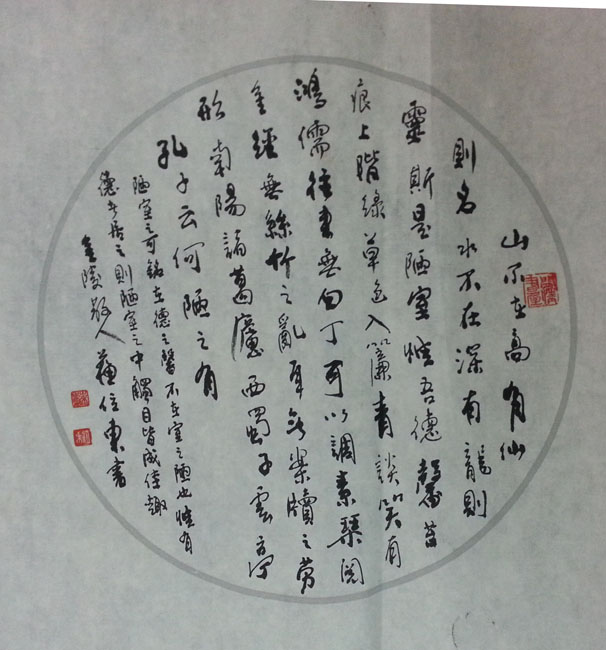 山不在高有仙
則名水不在深有龍則
靈斯是陋室惟吾德馨苔
痕上階綠草色入簾青談笑有
鴻儒往來無白丁可以調素琴閱
金經無絲竹之亂耳無案牘之勞
形南陽諸葛廬西蜀子雲亭
孔子云何陋之有
陋室之可銘在德之馨不在室之陋也惟有
德者居之則陋室之中觸目皆成佳趣
金陵散人蘇位東書